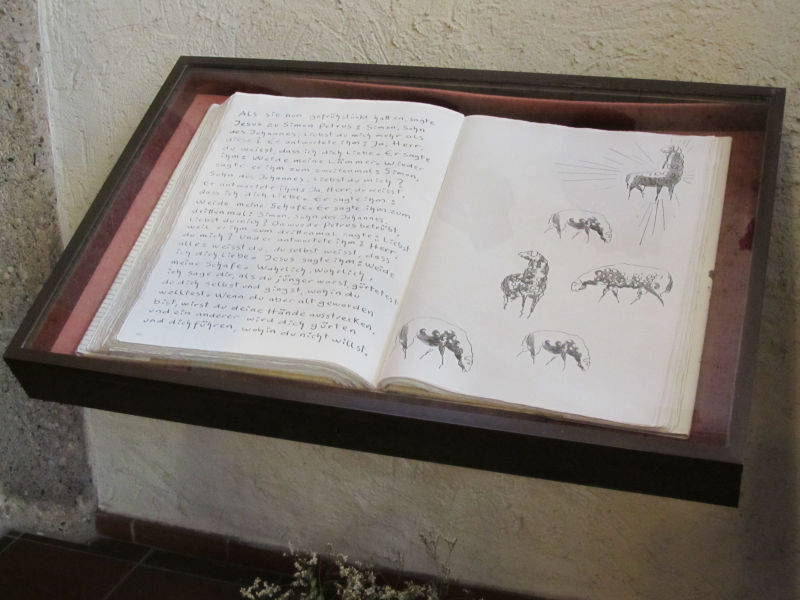 Als sie nun gefrühstückt hatten, sagte
Jesus zu Simon Petrus: Simon, Sohn
des Johannes, liebst du mich mehr als
diese? Er antwortete ihm: Ja, Herr,
du weisst, dass ich dich liebe. Er sagte
ihm: Weide meine Lämmer. Wieder
sagte er ihm zum zweitenmal: Simon,
Sohn des Johannes, liebst du mich?
Er antwortete ihm: Ja, Herr, du weisst,
dass ich dich liebe. Er sagte ihm:
Weide meine Schafe. Er sagte ihm zum
drittenmal: Simon, Sohn des Johannes,
liebst du mich? Da wurde Petrus betrübt,
weil er ihm zum drittenmal sagte: Liebst
du mich? Und er antwortete ihm: Herr,
alles weisst du, du selbst weisst, dass
ich dich liebe. Jesus sagte ihm: Weide
meine Schafe. Wahrlich, wahrlich,
ich sage dir, als du jünger warst, gürtetest
du dich selbst und gingst, wohin du
wolltest. Wenn du aber alt geworden
bist, wirst du deine Hände ausstrecken,
und ein anderer wird dich gürten
und dich führen, wohin du nicht willst.